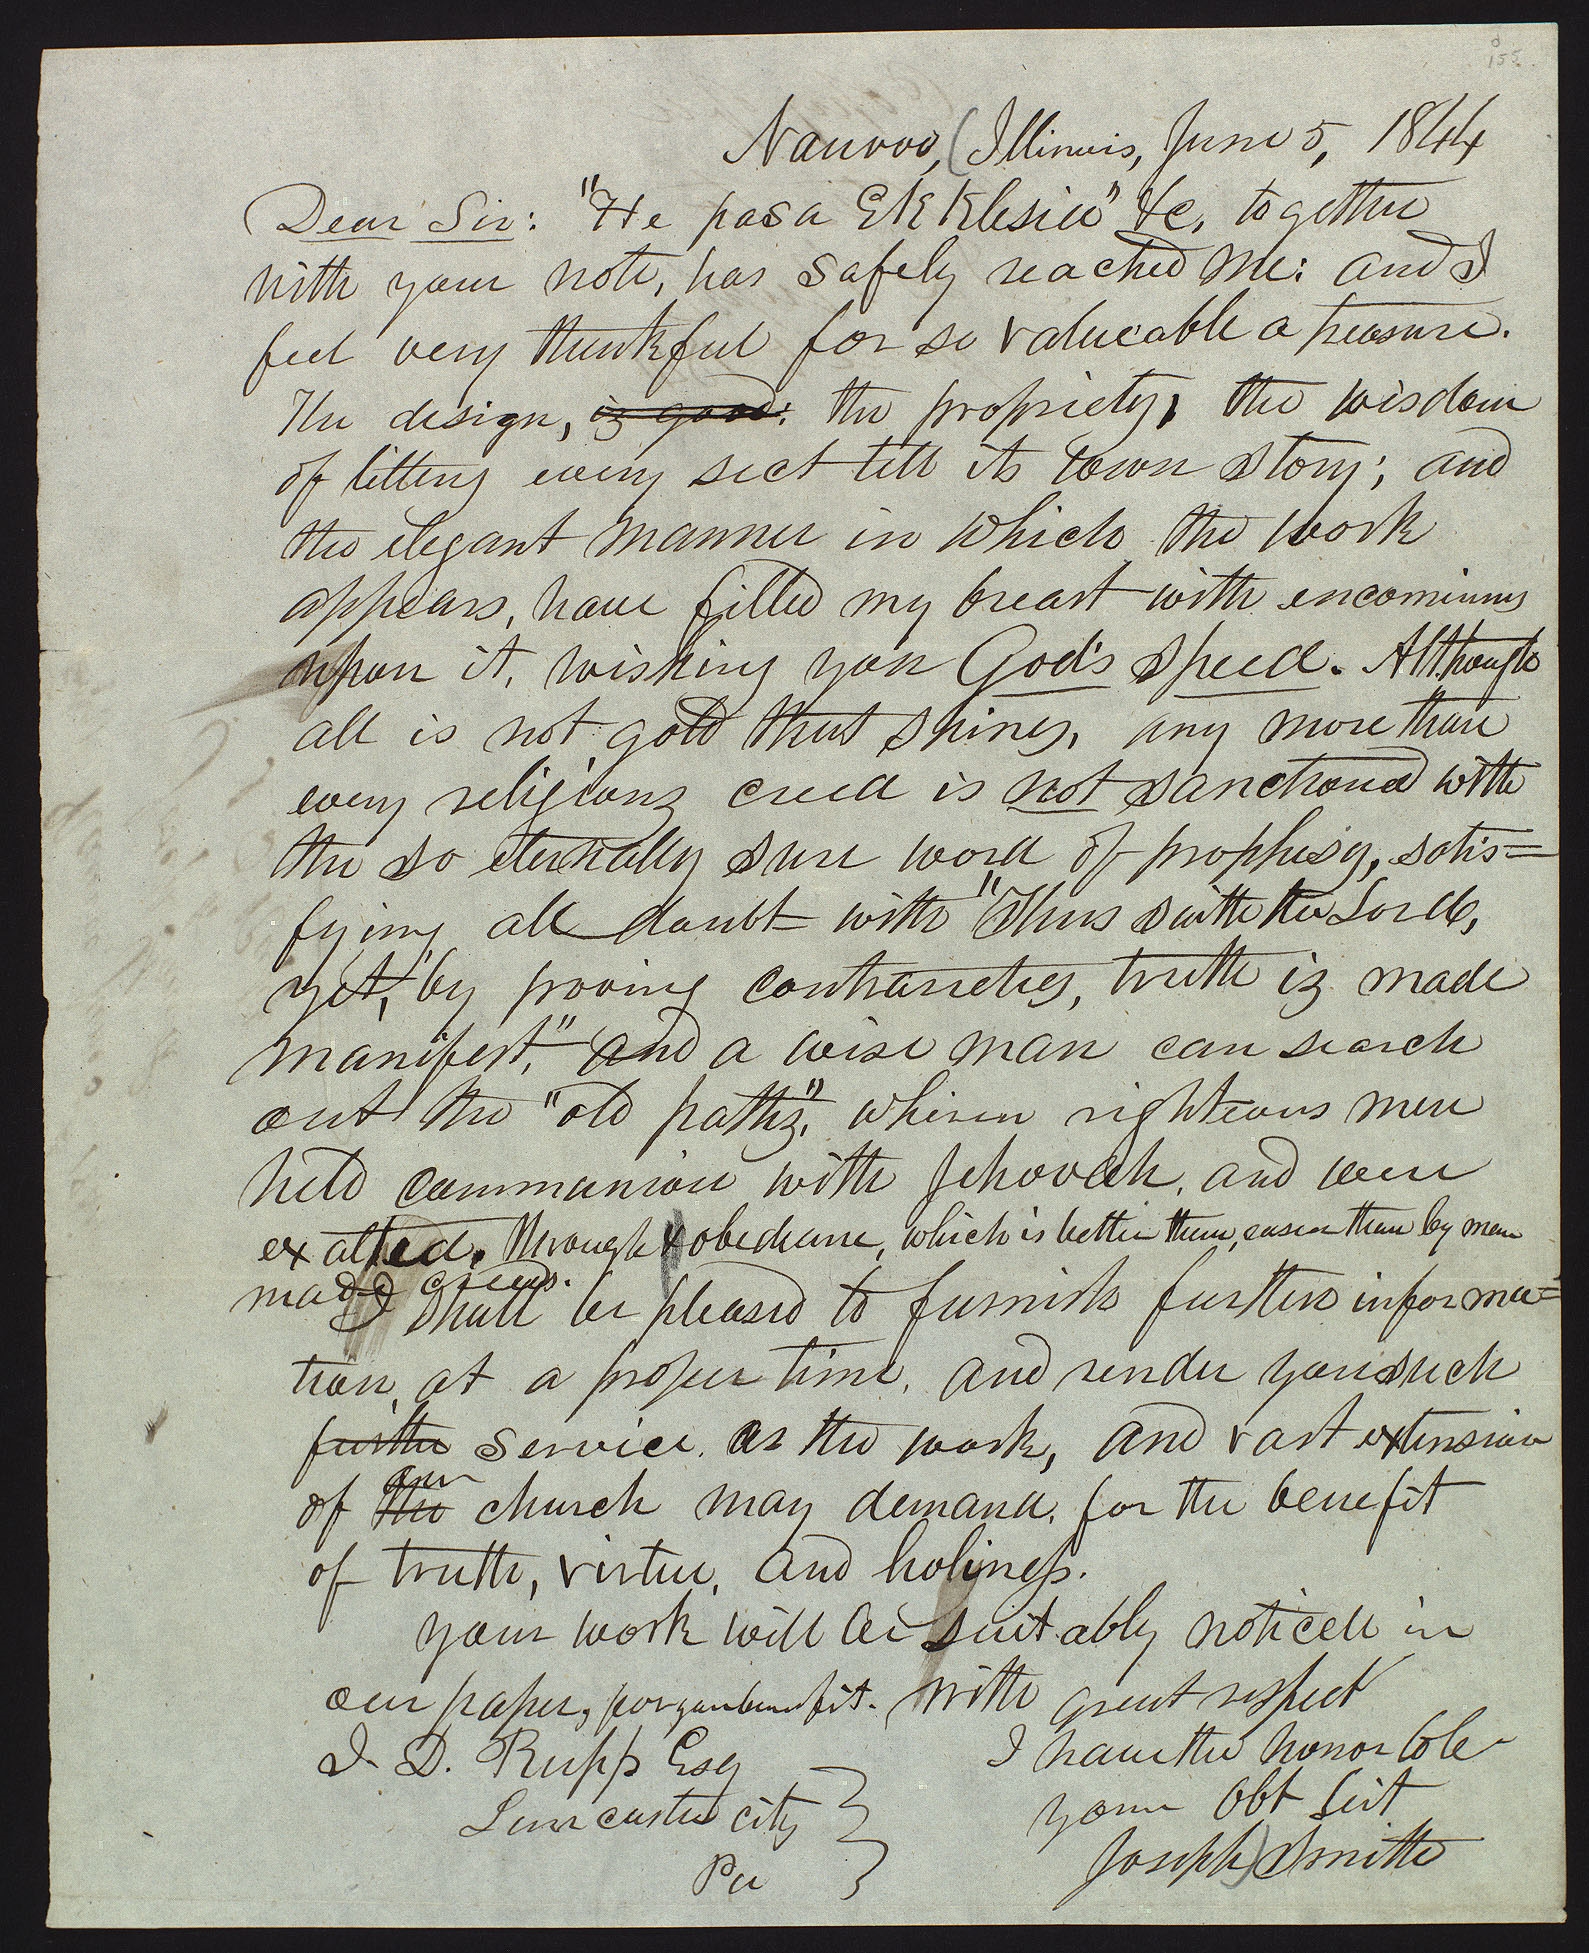 155
Nauvoo, (Illinois, June 5, 1844
Dear Sir: "He pasa Ekklesia" &c, together
with your note, has safely reached me: and I
feel very thankful for so valueable a treasure.
The design, is good: the propriety, the wisdom
of letting every sect tell its own story; and
the elegant manner in which the work
appears, have filled my breast with encomiums
upon it, wishing you God's speed. Although
all is not gold that shines, any more than
every religious creed is not sanctioned with
the so eternally sure word of prophesy, satis=
fying all doubt with "Thus saith the Lord,
yet, "by proving contrarieties, truth is made
manifest," and a wise man can search
out the "old paths," wherein righteous men
held communion with Jehovah, and were
exalted. through obedience, which is better than, easier than by men
made creeds.
I shall be pleased to furnish further informa=
tion, at a proper time, and render you such
further service, as the work, and vast extension
our
of the church may demand, for the benefit
of truth, virtue, and holiness.
Your work will be suitably noticed in
our paper, for your benefit. With great respect
I have the honor to be
I. D. Rupp Esq
your obt Sert
Lancaster city
Joseph Smith
Pa